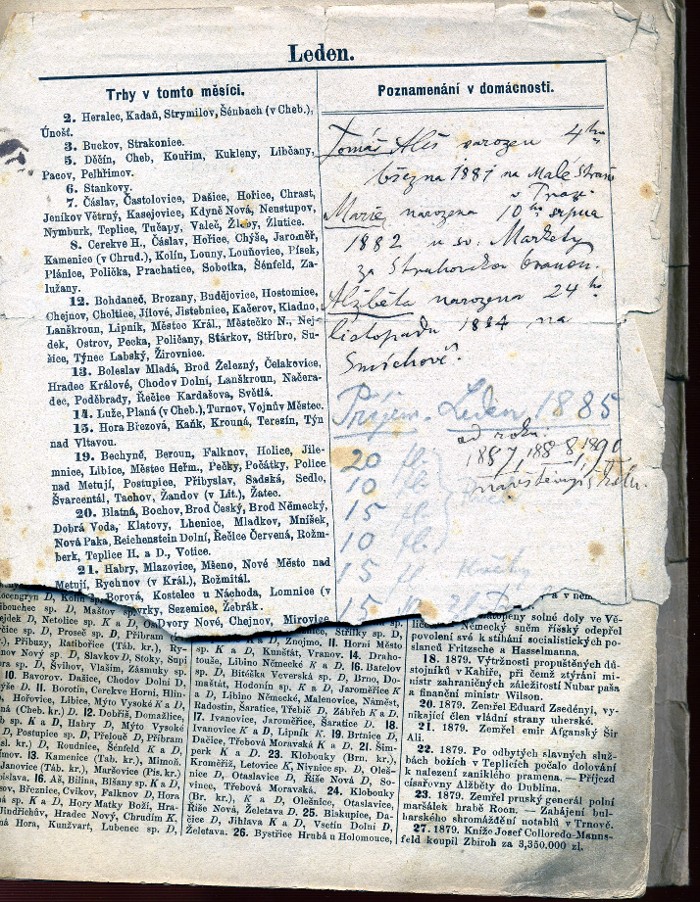 Leden.
Trhy v tomto měsíci.
2. Heralec, Kadaň, Strymilov, Šénbach (v Cheb.),
Únošť.
3. Buckov, Strakonice.
5. Děčín, Cheb, Kouřim, Kukleny, Libčany,
Pacov, Pelhřimov.
6. Stankovy.
7. Čáslav, Častolovice, Dašice, Hořice, Chrast,
Jeníkov Větrný, Kasejovice, Kdyně Nová, Neustupov,
Nymburk, Teplice, Tučapy, Valeč, Žleby, Žlutice.
8. Cerekve H., Čáslav, Hořice, Chýše, Jaroměř,
Kamenice (v Chrud.), Kolín, Louny, Louňovice, Písek,
Plánice, Polička, Prachatice, Sobotka, Šénfeld, Za-
lužany.
12. Bohdaneč, Brozany, Budějovice, Hostomice,
Chejnov, Choltice, Jílové, Jistebnice, Kačerov, Kladno,
Lanškroun, Lipník, Městec Král., Městečko N., Nej-
dek, Ostrov, Pecka, Poličany, Stárkov, Stříbro, Su-
šice, Týnec Labský, Žirovnice.
13. Boleslav Mladá, Brod Železný, Čelakovice,
Hradec Králové, Chodov Dolní, Lanškroun, Načera-
dec, Poděbrady, Řečice Kardašova, Světlá.
14. Luže, Planá (v Cheb.), Turnov, Vojnův Městec.
15. Hora Březová, Kaňk, Krouná, Terezín, Týn
nad Vltavou.
19. Bechyně, Beroun, Falknov, Holice, Jile-
mnice, Libice, Městec Heřm., Pečky, Počátky, Police
nad Metují, Postupice, Přibyslav, Sadská, Sedlo,
Švarcentál, Tachov, Žandov (v Lit.), Žatec.
20. Blatná, Bochov, Brod Český, Brod Německý,
Dobrá Voda, Klatovy, Lhenice, Mladkov, Mníšek,
Nová Paka, Reichenstein Dolní, Řečice Červená, Rožm-
berk, Teplice H. a D., Votice.
21. Habry, Mlazovice, Mšeno, Nové Město nad
Metují, Rychnov (v Král.), Rožmitál.
Borová, Kostelec u Náchoda, Lomnice (v
Sezemice, Žebrák.
Dvory Nové, Chejnov, Mirovice
Poznamenání v domácnosti.
Tomáš Aleš narozen 4ho
března 1881 na Malé Straně
v Praze.
Marie narozena 10ho srpna
1882 u sv. Markéty
za Strahovskou branou.
Alžběta narozena 24ho
listopadu 1884 na
Smíchově.
Příjem. Leden 1885
od roku.
1887, 1888, 1890
20 fl.
10 fl.
15 fl.
10 fl.
15 fl.
15
Netolice sp. K a D,
10. Bavorov. Dašice, Chodov Dolní D,
11. Borotín, Cerekve Horní, Hlin-
Hořovice, Libice, Mýto Vysoké K a D,
12. Dobříš, Domažlice,
Habry D, Mýto Vysoké
Postupice sp. D, Přelouč D, Příbram
Roudnice, Šénfeld K a D,
13. Kamenice (Tab. kr.), Mimoň.
Janovice (Táb. kr.), Maršovice (Pís. kr.)
16. Aš, Bílina, Blžany sp. K a D,
Březnice, Cvikov, Falknov D, Hora
K a D, Hory Matky Boží, Hra-
Jindřichův, Hradec Nový, Chrudim K,
Hora, Kunžvart, Lubenec sp. D,
Stříky sp. D,
D, Znojmo. 11. Horní Město
D, Kunštát, Vranov. 14. Draho-
touše, Libino Německé K a D. 16. Batelov
sp. D, Bitéška Veverská sp. D, Brno, Do-
maštát, Hodonín sp. K a D, Jaroměřice K
a D, Libino Německé, Malenovice, Náměšť,
Radostín, Šaratice, Třebíč D, Zábřeh K a D.
17. Ivanovice, Jaroměřice, Šaratice D. 18.
Ivanovice K a D, Lipník K. 19. Brtnice D,
Dačice, Třebová Moravská K a D. 21. Šim-
perk K a D. 23. Klobouky (Brn. kr.),
Kroměříž, Letovice K, Nivnice sp. D, Oleš-
nice D, Otaslavice D, Říše Nová D, So-
vinec, Třebová Moravská. 24. Klobouky
(Br. kr.), K a D, Olešnice, Otaslavice,
Říše Nová, Želetava D. 25. Biskupice, Da-
čice D, Jihlava K a D, Vsetín Dolní D,
Želetava. 26. Bystřice Hrubá u Holomouce,
zatopené solné doly ve Vě-
Německý sněm říšský odepřel
povolení své k stíhání socialistických po-
slanců Fritzsche a Hasselmanna.
18. 1879. Výtržnosti propuštěných dů-
stojníků v Kahiře, při čemž ztýráni mi-
nistr zahraničných záležitostí Nubar paša
a finanční ministr Wilson.
20. 1879. Zemřel Eduard Zsedényi, vy-
nikající člen vládní strany uherské.
21. 1879. Zemřel emir Afganský Šir
Ali.
22. 1879. Po odbytých slavných služ-
bách božích v Teplicích počalo dolování
k nalezení zaniklého pramena. — Příjezd
císařovny Alžběty do Dublina.
23. 1879. Zemřel pruský generál polní
maršálek hrabě Roon. — Zahájení bul-
harského shromáždění notablů v Trnově.
27. 1879. Kníže Josef Colloredo-Manns-
feld koupil Zbiroh za 3,350.000 zl.